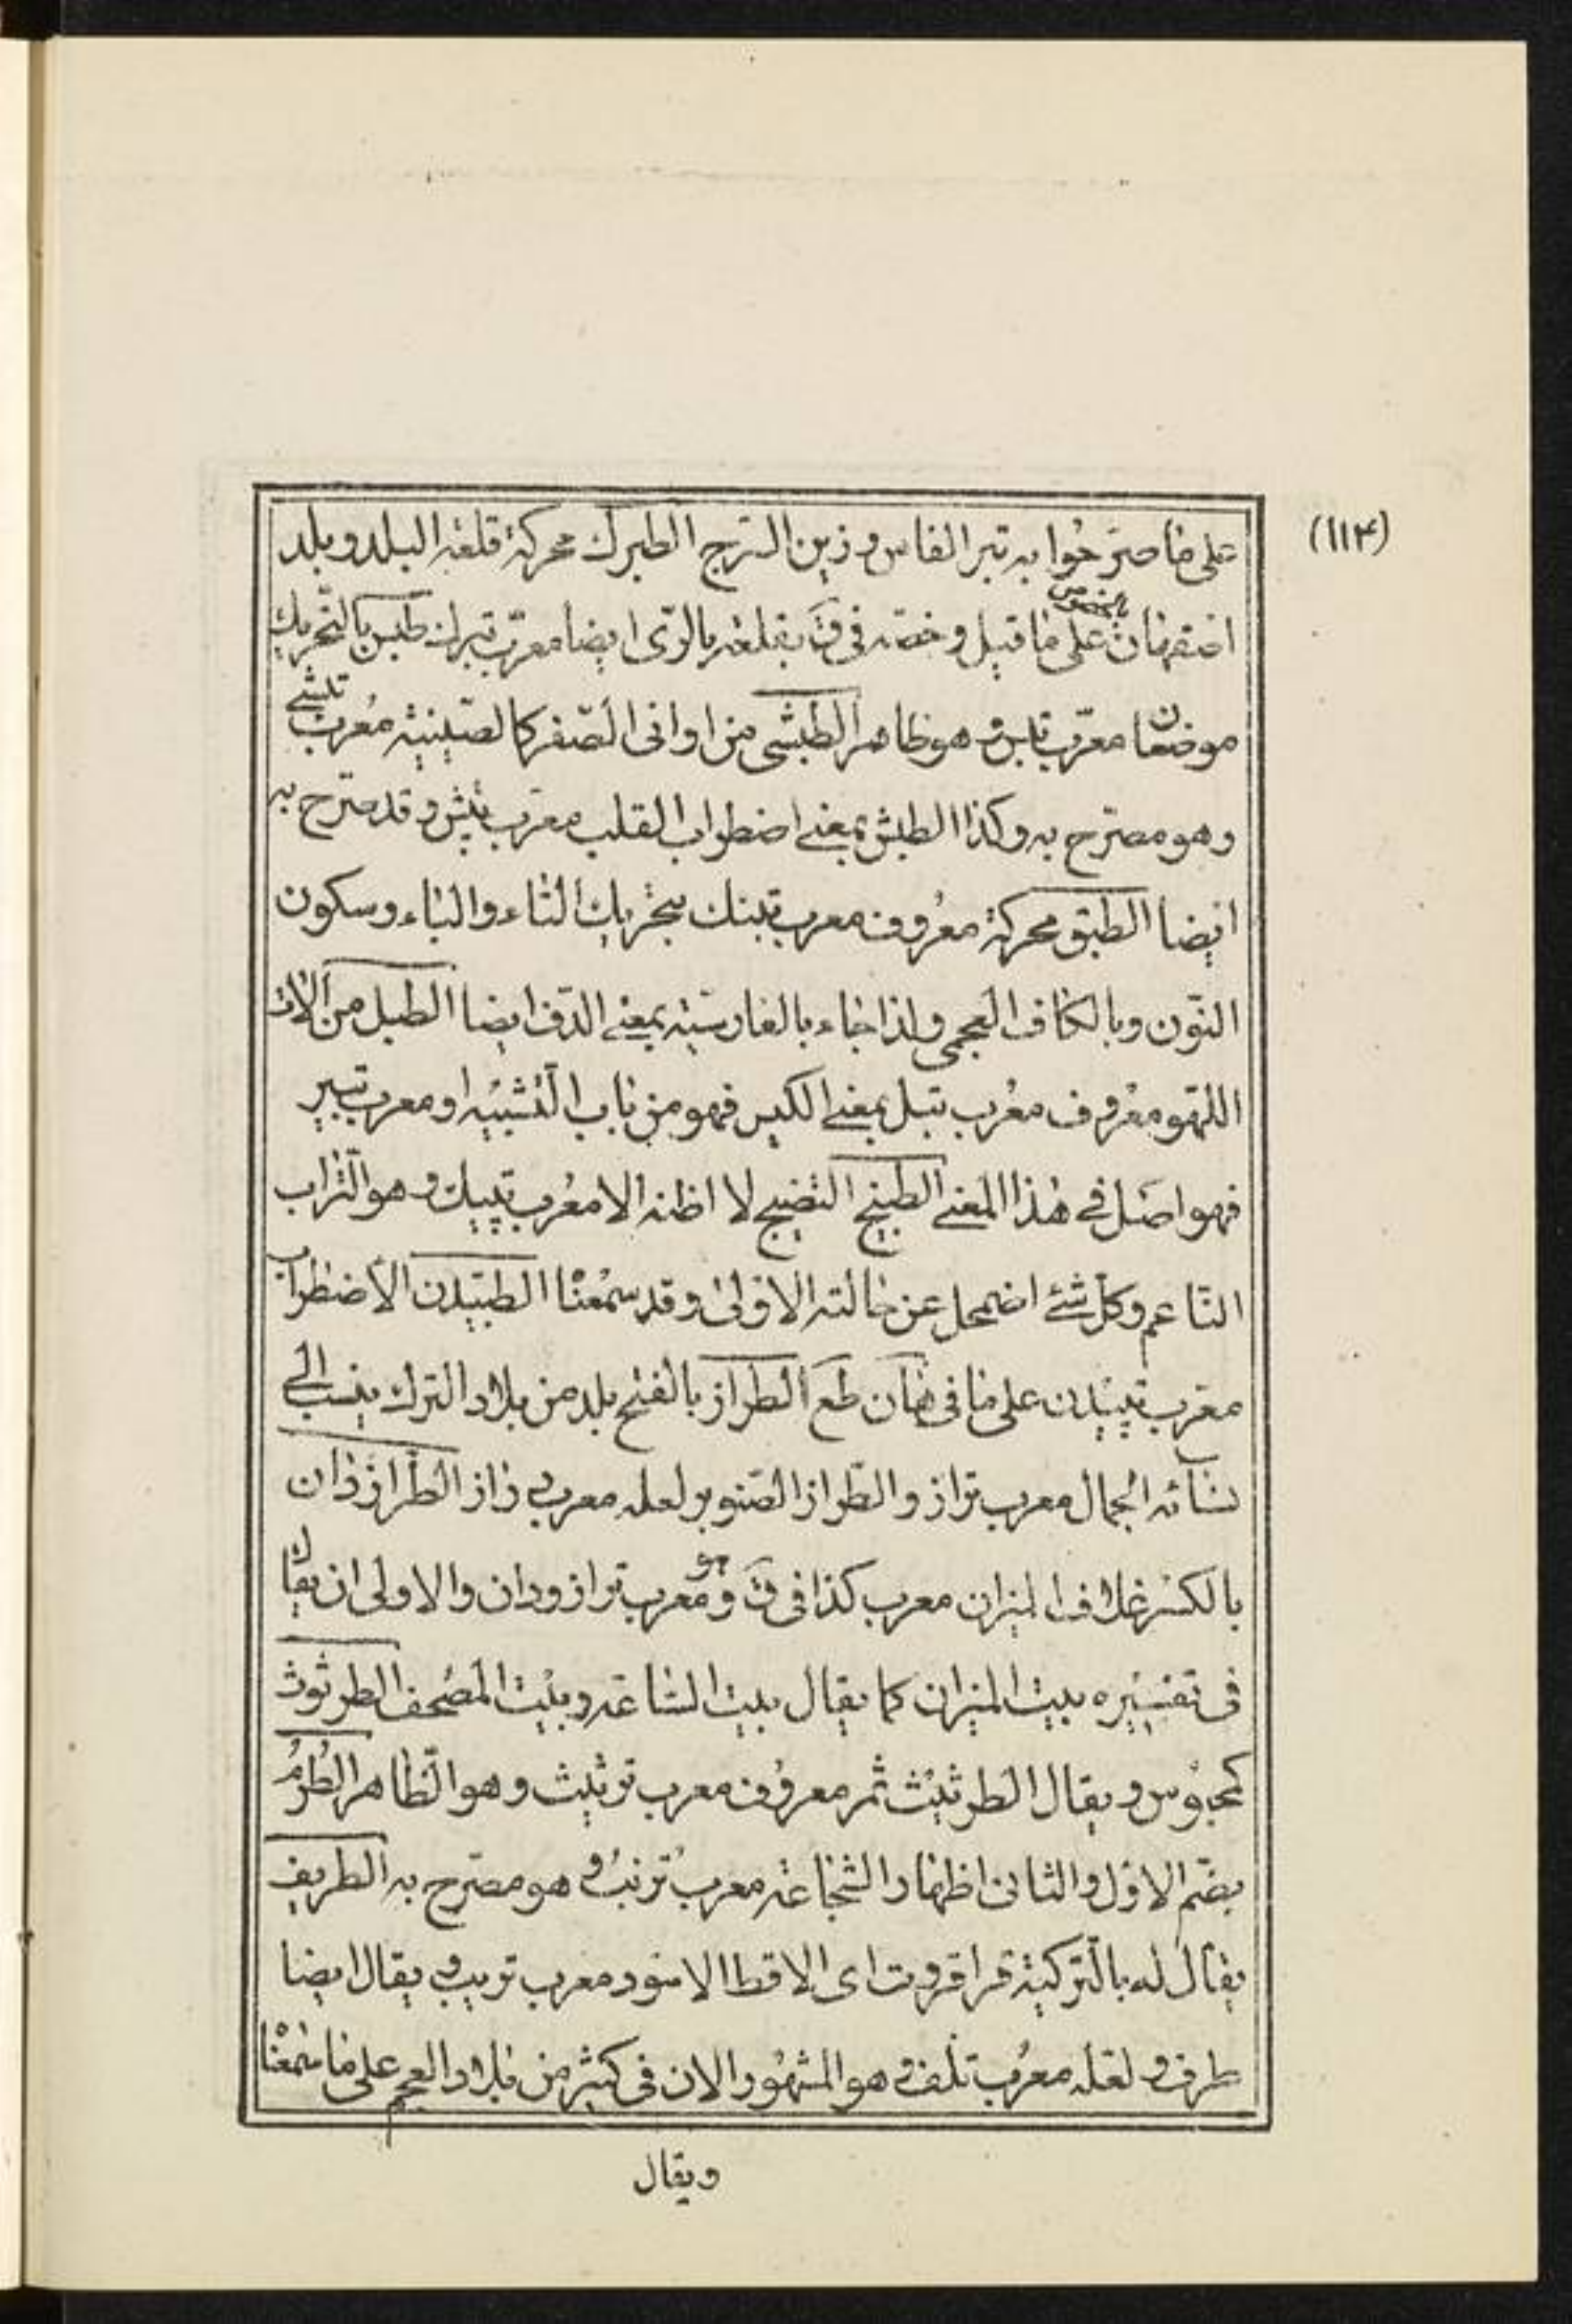 (۱۱۴)
على ما صرّحوا به تبر الفاس وزين السّرج الطبرك محركة قلعة البلد وبلد
اصفهان على ما قيل وخصّه فى ق بقلعة بالرّى ايضا معرّب تبرك طبس بالتّحريك
بالخصوص
موضعان معرّب تبس وهو ظاهر الطبشى من اوانى الصّفر كالصّينيّة معرب تبشى
وهو مصرّح به وكذا الطبش بمعنى اضطراب القلب معرّب تبش وقد صرّح به
ايضا الطبق محركة معروف معرب تبنك بتحريك التاء والباء وسكون
النّون وبالكاف العجمى ولذا جاء بالفارسيّة بمعنى الدّف ايضا الطبل من آلات
اللهو معروف معرب تبل بمعنى الكيس فهو من باب التّشبيه او معرب تبير
فهو اصل فى هذا المعنى الطبيج النضيج لا اظنه الا معرب تپيك وهو التّراب
النّاعم وكلّ شئ اضمحل عن حالته الاولى وقد سمعنا الطبيدن الاضطراب
معرّب تپيدن على ما فى طع الطراز بالفتح بلد من بلاد الترك ينسب الى
نسائه الجمال معرب تراز والطّراز الصّنوبر لعله معرب زاز الطّرازدان
بالكسر غلاف الميزان معرب كذا فى ق وهو معرب ترازودان والاولى ان يقال
فى تفسيره بيت الميزان كما يقال بيت السّاعة وبيت المصحف الطرثوث
ويقال الطرثيث ثمر معروف معرب ترثيث وهو الظّاهر الطُرُم
بضّم الاوّل والثانى اظهار الشّجاعة معرب وهو مصرّح به الطريف
يقال له بالتّركيّة قراقروت اى الاقط الاسود معرب تريب ويقال ايضا
طرف ولعله معرب تلف وهو المشهور الان فى كثير من بلاد العجم على ما سمعنا
ويقال